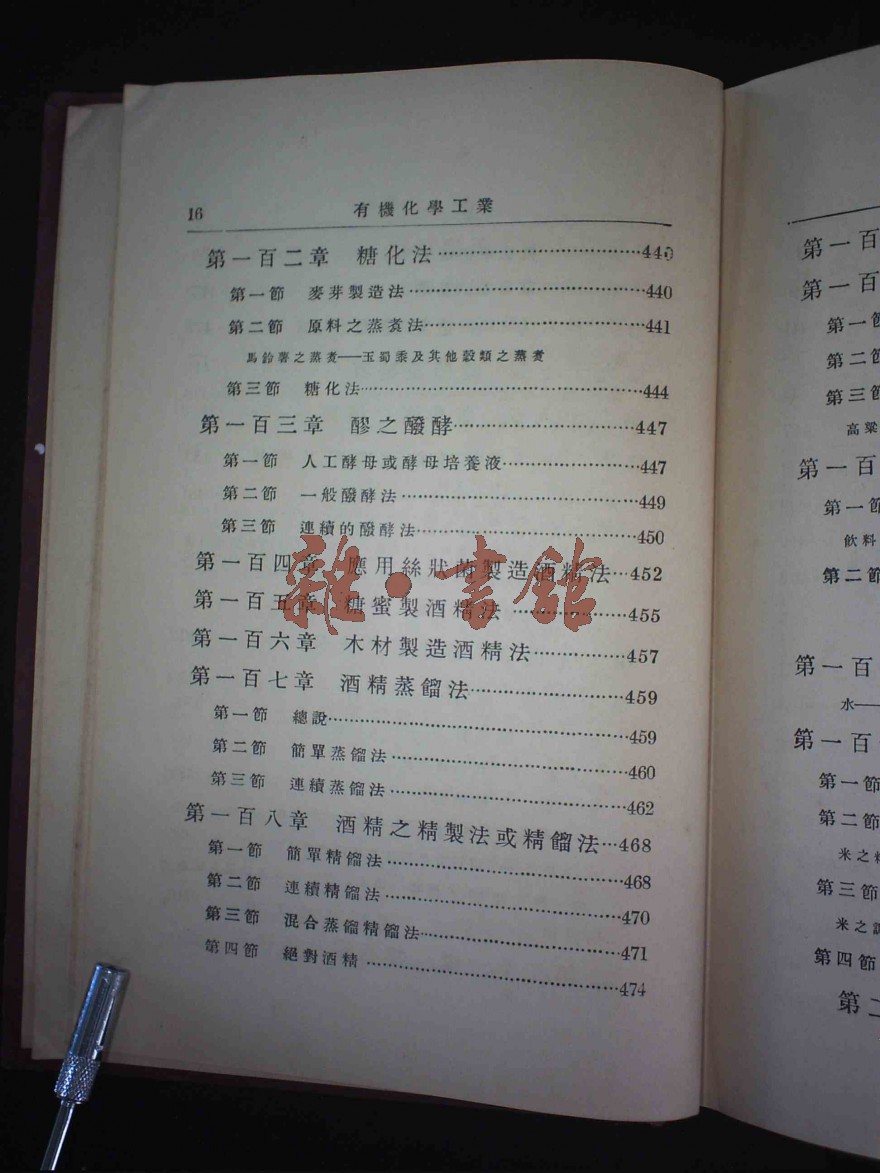 16 有機化學工業
第一百二章 糖化法……440
第一節 麥芽製造法……440
第二節 原料之蒸煑法……441
馬鈴薯之蒸煑——玉蜀黍及其他穀類之蒸煑
第三節 糖化法……444
第一百三章 醪之醱酵……447
第一節 人工酵母或酵母培養液……447
第二節 一般醱酵法……449
第三節 連續的醱酵法……450
第一百四章 應用絲狀菌製造酒精法…452
第一百五章 糖蜜製酒精法……455
第一百六章 木材製造酒精法……457
第一百七章 酒精蒸餾法……459
第一節 總說……459
第二節 簡單蒸餾法……460
第三節 連續蒸餾法……462
第一百八章 酒精之精製法或精餾法…468
第一節 簡單精餾法……468
第二節 連續精餾法……470
第三節 混合蒸餾精餾法……471
第四節 絕對酒精……474
雜·書館
第一百
第一百
第一節
第二節
第三節
高粱
第一百
第一節
飲料
第二節
第一百
水——
第一百
第一節
第二節
米之
第三節
米之
第四節
第二